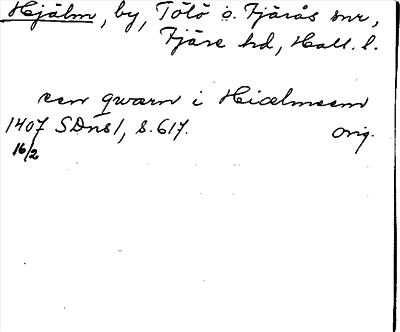 Hjälm, by, Tölö o. Fjärås snr,
Fjäre hd, Hall. l.
een qwærn i Hiælmsem
1407 SDns 1, s. 617. Orig.
16/2